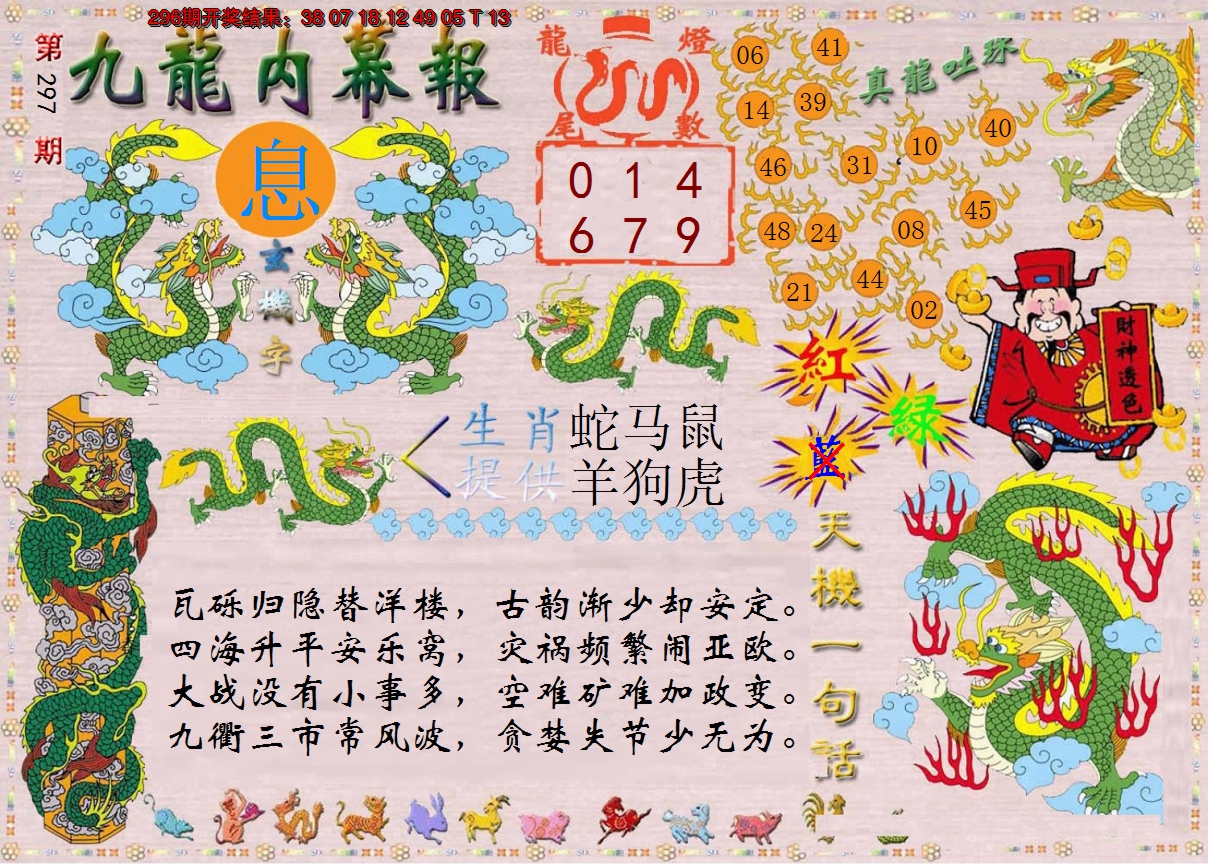 296期开奖结果：38 07 18 12 49 05 T 13
第297期
九龍内幕報
息
玄機字
龍燈
尾數
0 1 4
6 7 9
真龍吐珠
06 41
14 39
46 31 10 40
48 24 08 45
21 44 02
紅
綠
藍
財神透色
生肖 蛇马鼠
提供 羊狗虎
天機一句話
瓦砾归隐替洋楼，古韵渐少却安定。
四海升平安乐窝，灾祸频繁闹亚欧。
大战没有小事多，空难矿难加政变。
九衢三市常风波，贪婪失节少无为。